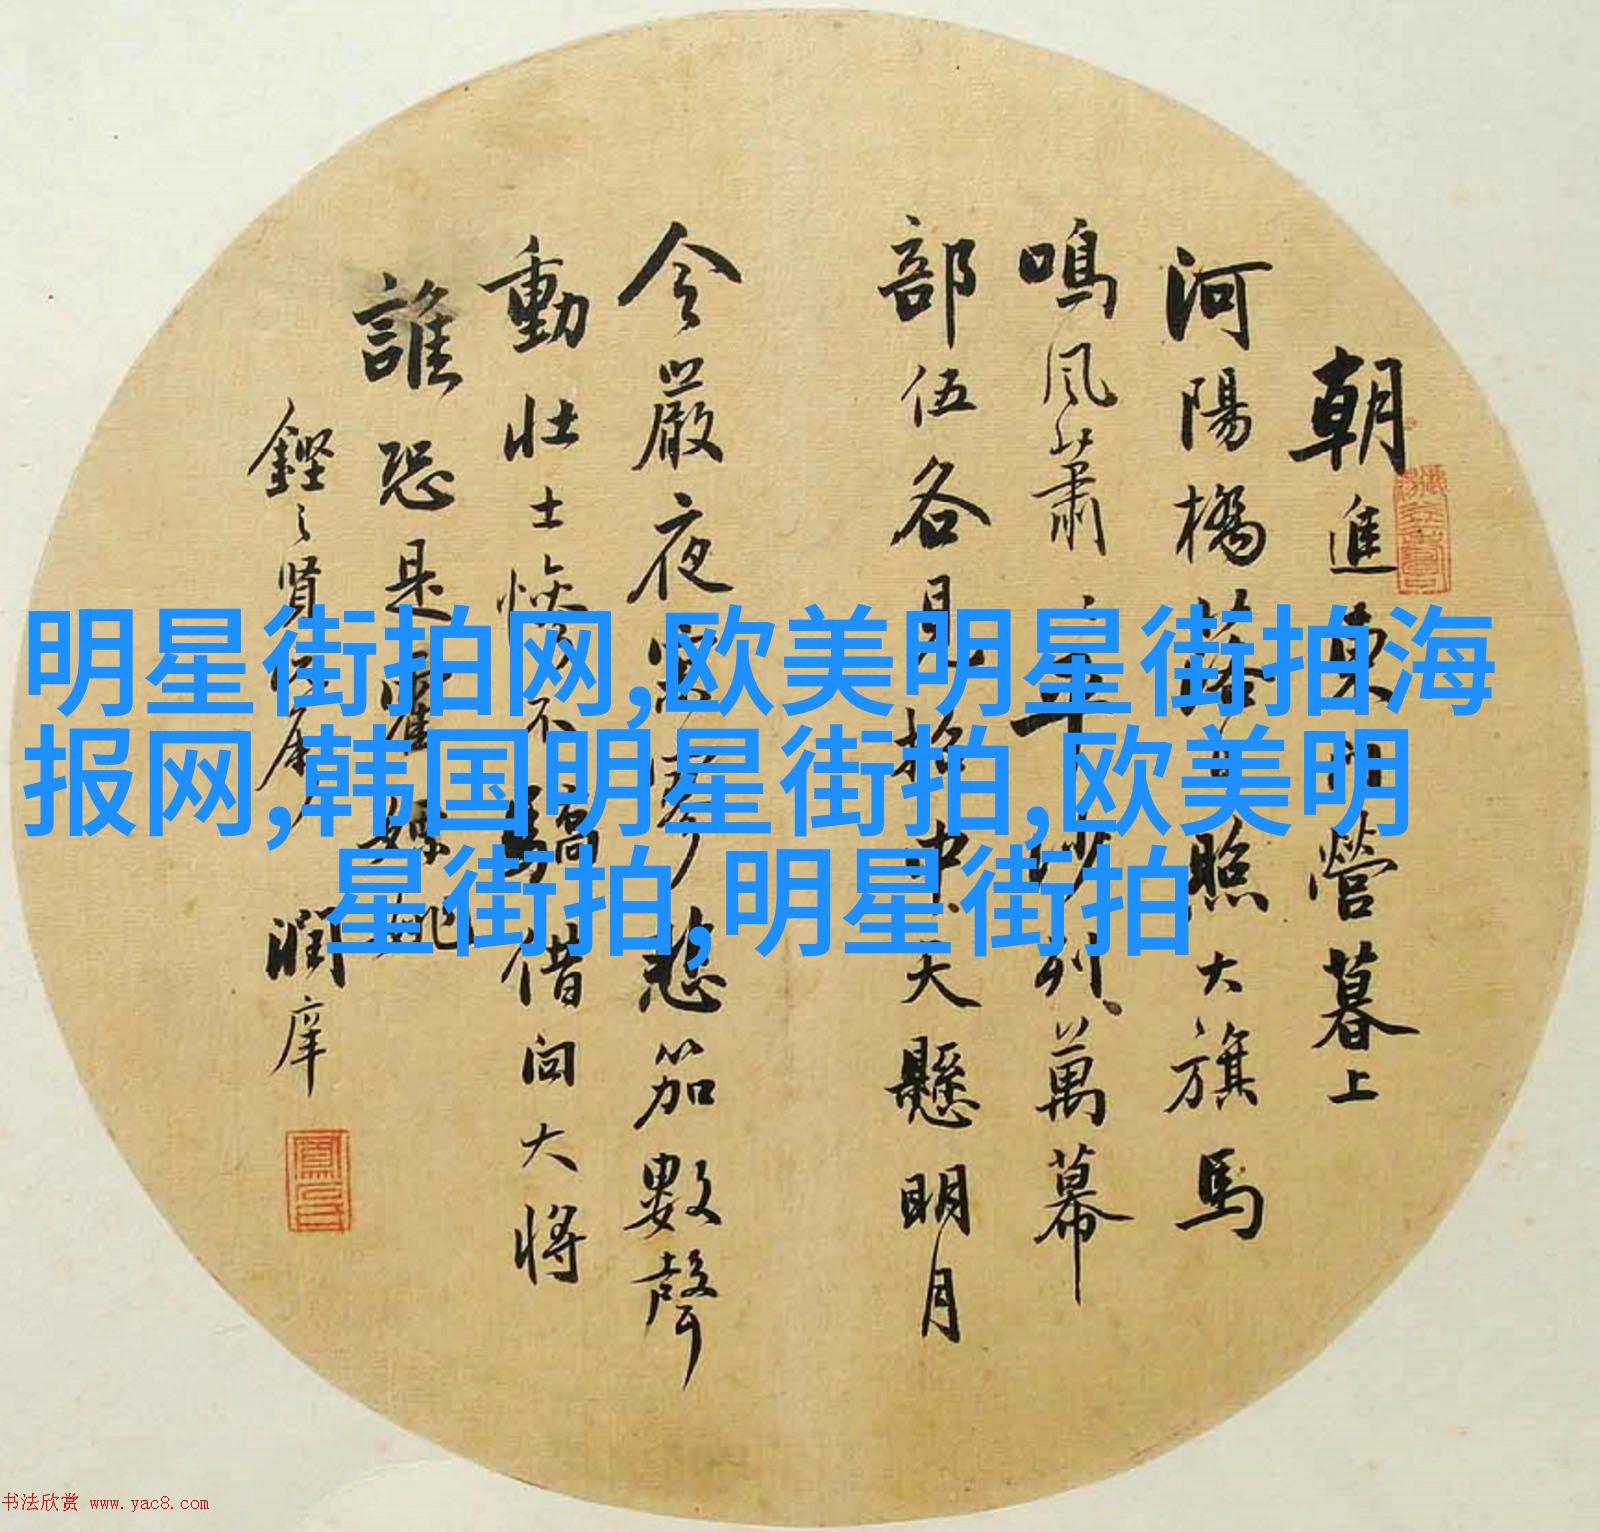 朝進東門營暮上
河陽橋落日照大旗馬
鳴風蕭〻平沙列萬幕
部伍各見招中天懸明月
令嚴夜寂寥悲笳數聲
動壯士慘不驕借問大將
誰恐是霍嫖姚
賢 潤庠
明星街拍网,欧美明星街拍海
报网,韩国明星街拍,欧美明
星街拍,明星街拍
书法欣赏 www.yac8.com